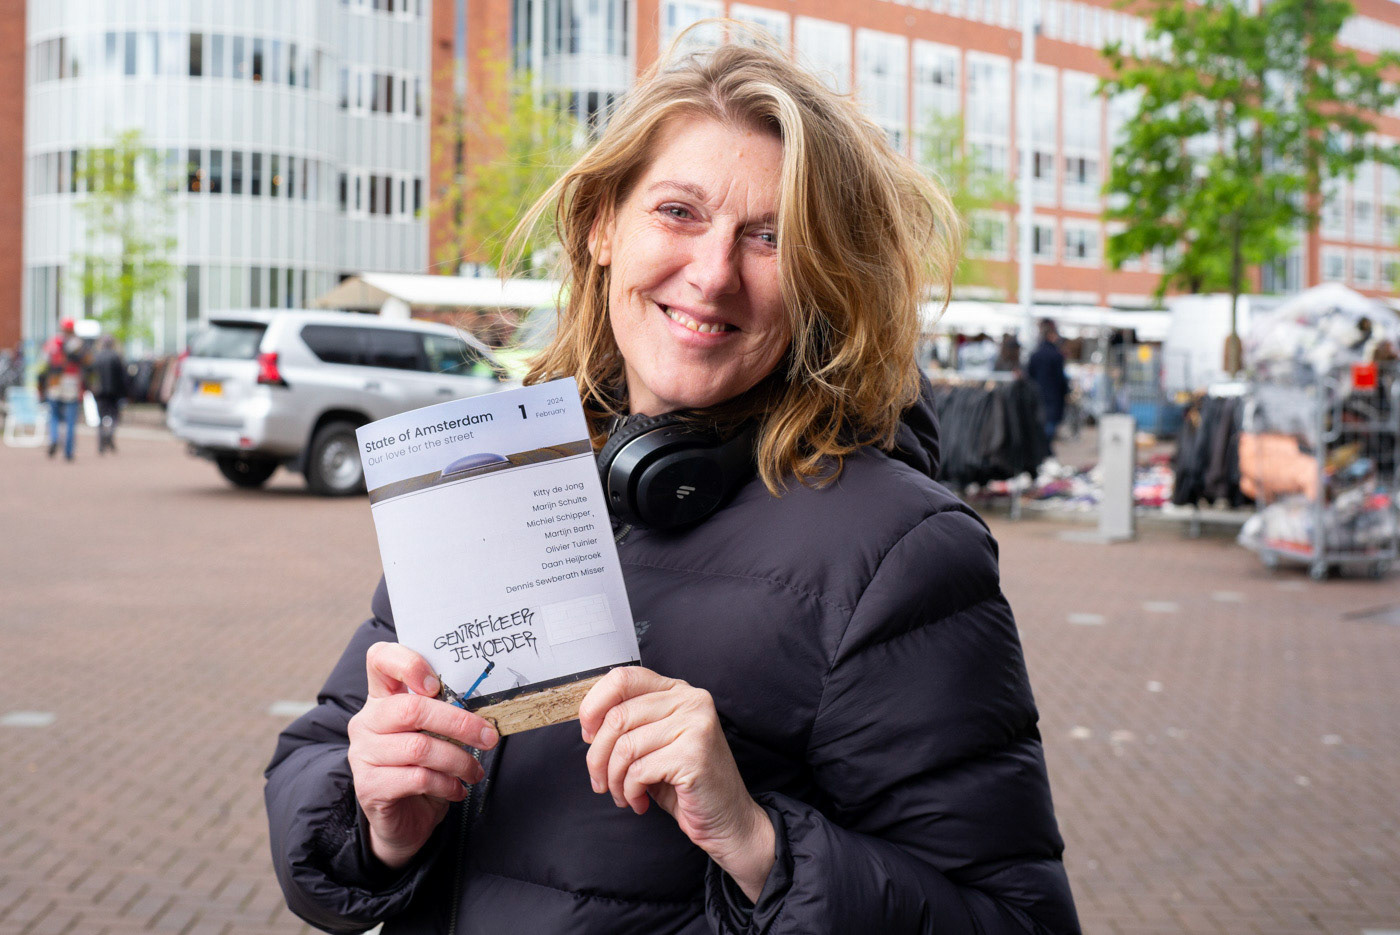 State of Amsterdam
Our love for the street
1
2024
February
Kitty de Jong
Marijn Schulte
Michiel Schipper,
Martijn Barth
Olivier Tuinier
Daan Heijbroek
Dennis Sewberath Misser
GENTRIFICEER
JE MOEDER